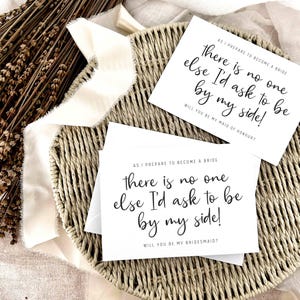 AS I PREPARE TO BECOME A BRIDE
There is no one
else I'd ask to be
by my side!
WILL YOU BE MY MAID OF HONOUR?
AS I PREPARE TO BECOME A BRIDE
there is no one
else I'd ask to be
by my side!
WILL YOU BE MY BRIDESMAID?